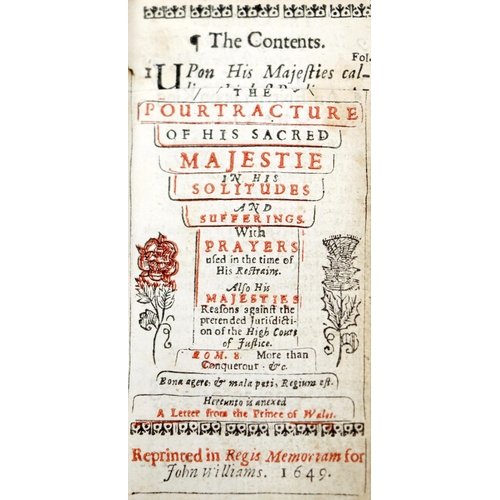 ¶ The Contents.
Fol.
1 UPon His Majesties cal-
THE
POURTRACTURE
OF HIS SACRED
MAJESTIE
IN HIS
SOLITUDES
AND
SUFFERINGS.
With
PRAYERS
used in the time of
His Restraint.
Also His
MAJESTIES
Reasons against the
pretended Jurisdicti-
on of the High Court
of Justice.
ROM. 8. More than
Conquerour. &c.
Bona agere, & mala pati, Regium est.
Hereunto is anexed
A Letter from the Prince of Wales.
Reprinted in Regis Memoriam for
John Williams. 1649.